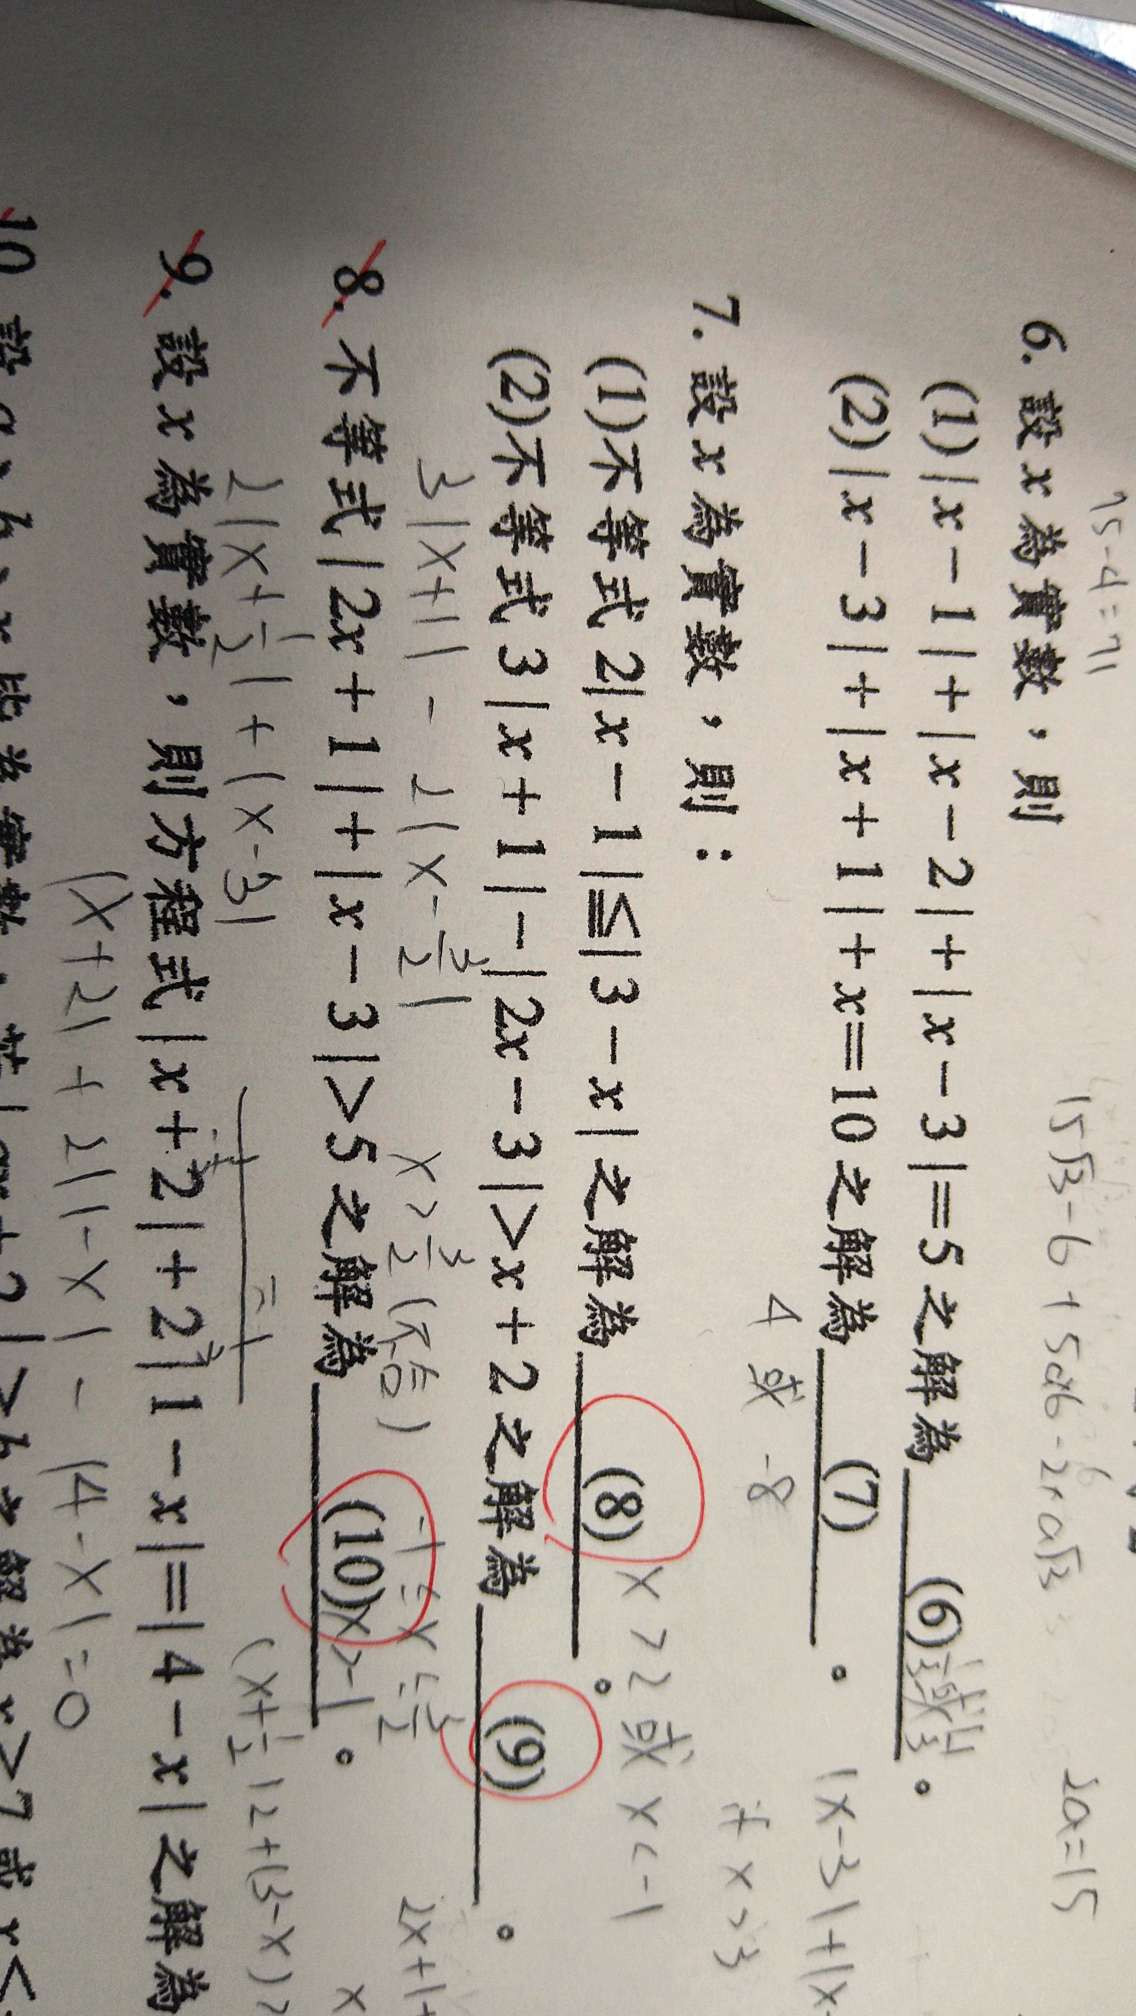 75-4=71
15√3-6+5ab-2ra√3
2a=15
6. 設 x 為實數，則
(1)|x-1|+|x-2|+|x-3|=5 之解為 (6) 1/3或11/3 。
(2)|x-3|+|x+1|+x=10 之解為 (7) 。
4 或 -8
|x-3|+|x-
if x>3
7. 設 x 為實數，則：
(1)不等式 2|x-1|≦|3-x| 之解為 (8) 。
x>2或 x<-1
(2)不等式 3|x+1|-|2x-3|>x+2 之解為 (9) 。
3|x+1| - 2|x-3/2|
x>3/2 (不合)
-1≤x≤3/2
2x+1+
8. 不等式|2x+1|+|x-3|>5 之解為 (10) 。
x>-1
2|x+1/2|+|x-3|
(x+1/2)2+(3-x)>
x
9. 設 x 為實數，則方程式|x+2|+2|1-x|=|4-x| 之解為
|x+2|+2|1-x|-|4-x|=0
10. 設 a、b、x 皆為實數，若|ax+2|>b 之解為 x>7 或 x<